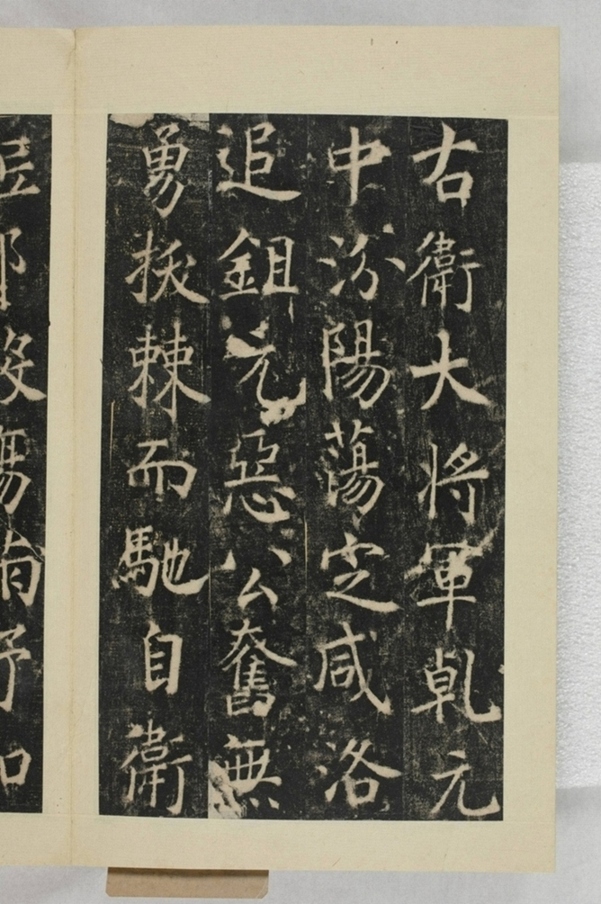 右衛大将軍乹元
中汾陽蕩定咸洛
追鉏元惡公奮無
勇拔棘而馳自衛